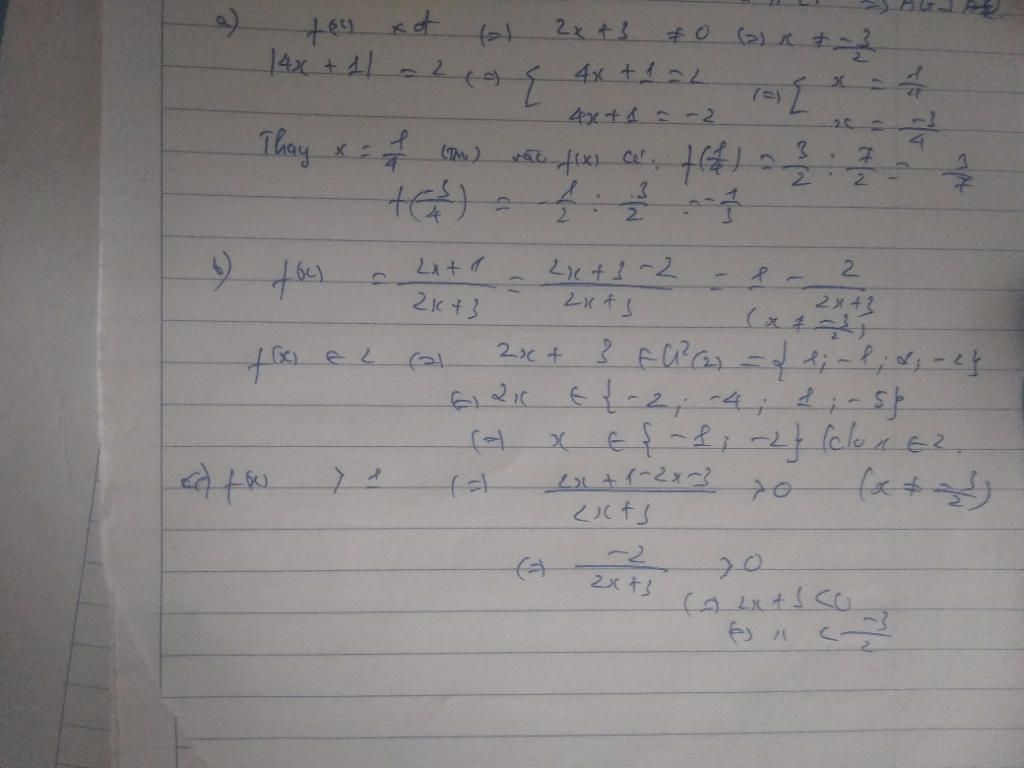 a) f(x) xđ (=) 2x + 3 ≠ 0 (=) x ≠ -3/2
|4x + 1| = 2 (=) { 4x + 1 = 2 (=) { x = 1/4
4x + 1 = -2 x = -3/4
Thay x = 1/4 (Tm) vào f(x) có: f(1/4) = 3/2 : 7/2 = 3/7
f(-3/4) = -1/2 : 3/2 = -1/3
b) f(x) = 2x+1/2x+3 = 2x+3-2/2x+3 = 1 - 2/2x+3
(x ≠ -3/2)
f(x) ∈ Z (=) 2x + 3 ∈ Ư(2) = {1; -1; 2; -2}
(=) 2x ∈ {-2; -4; 1; -5}
(=) x ∈ {-1; -2} (do x ∈ Z
c) f(x) > 1 (=) 2x+1-2x-3/2x+3 > 0 (x ≠ -3/2)
(=) -2/2x+3 > 0
(=) 2x+3 < 0
(=) x < -3/2